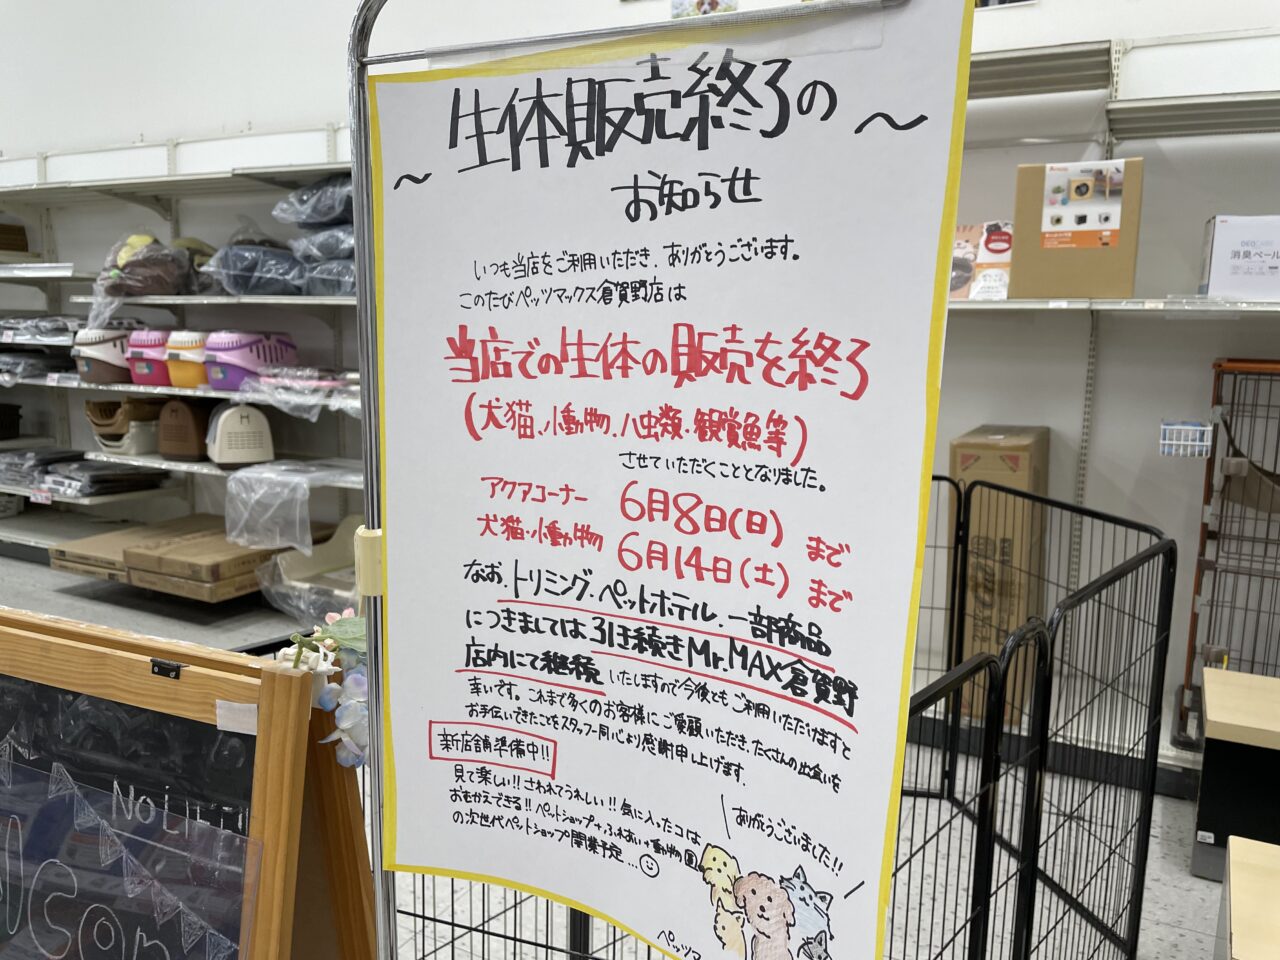 ～生体販売終了の～
お知らせ
いつも当店をご利用いただき、ありがとうございます。
このたびペッツマックス倉賀野店は
当店での生体の販売を終了
(犬猫、小動物、ハ虫類・観賞魚等)
させていただくこととなりました。
アクアコーナー 6月8日(日)まで
犬猫・小動物 6月14日(土)まで
なお、トリミング・ペットホテル、一部商品
につきましては、引き続きMr.MAX倉賀野
店内にて継続いたしますので今後ともご利用いただけますと
幸いです。これまで多くのお客様にご愛顧いただき、たくさんの出会いを
お手伝いできたことをスタッフ一同心より感謝申し上げます。
新店舗準備中!!
見て楽しい!! さわれてうれしい!! 気に入ったコは
おむかえできる!! ペットショップ+ふれあい+動物園
の次世代ペットショップ開業予定...
ありがとうございました!!
ペッツマ
DEOCARE
消臭ペール
No LIFE